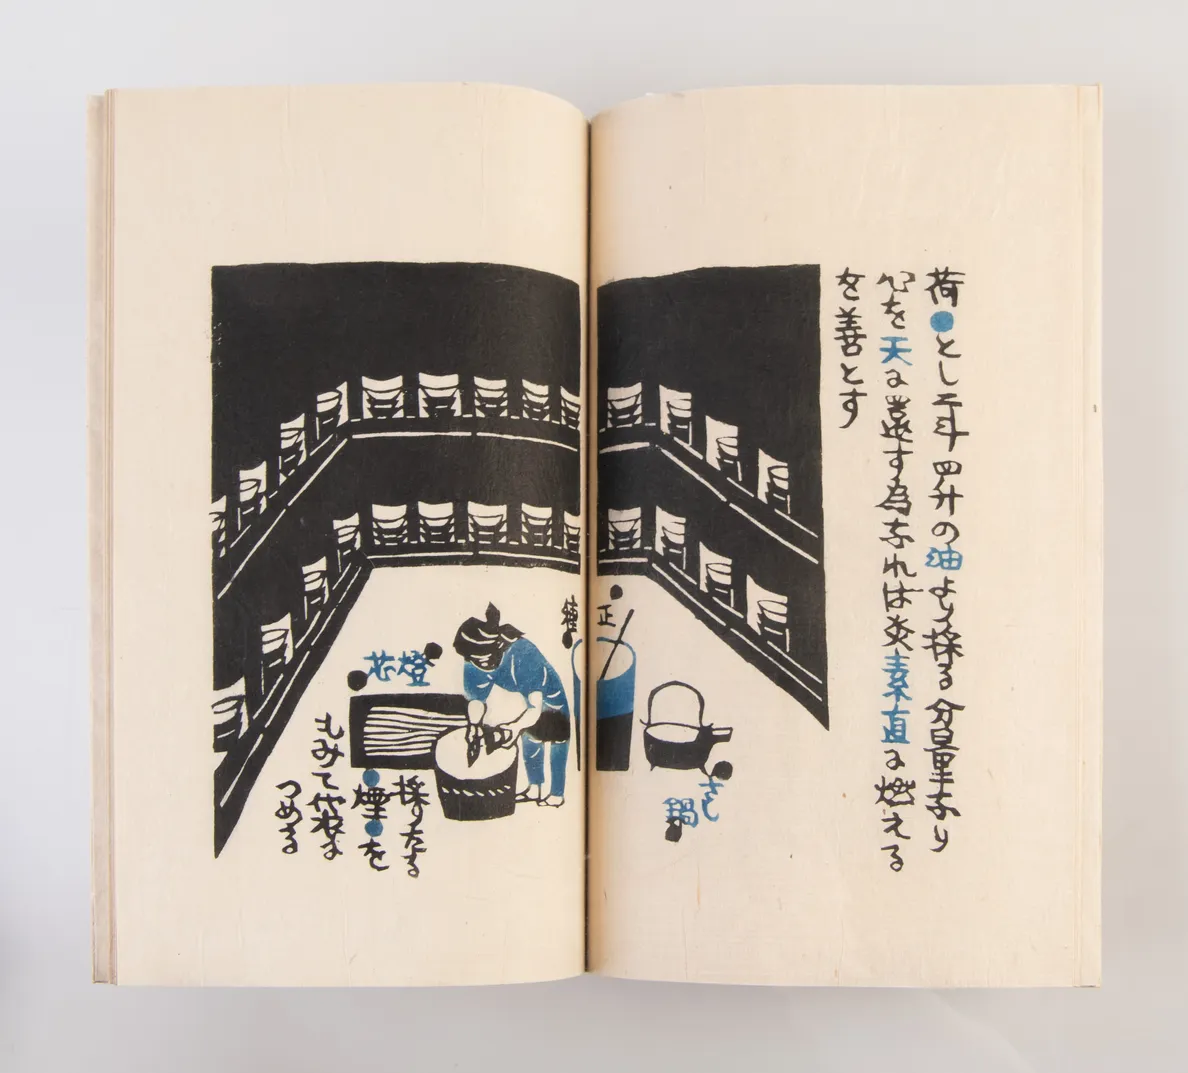 荷●とし二斗四升の油より採る分量なり
心を天に還す為なれは炎素直に燃える
を善とす
正
さし
鍋
燈芯
採りたる
●煙●を
もみて俵に
つめる